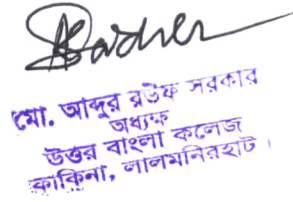 মো. আব্দুর রউফ সরকার
অধ্যক্ষ
উত্তর বাংলা কলেজ
কাকিনা, লালমনিরহাট।